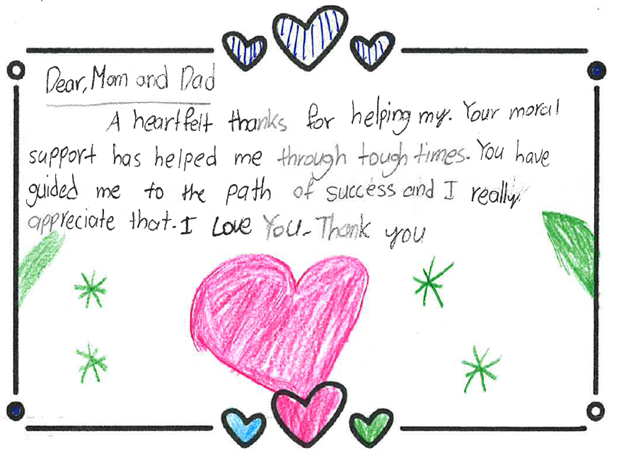 Dear, Mom and Dad
A heartfelt thanks for helping my. Your moral
support has helped me through tough times. You have
guided me to the path of success and I really
appreciate that. I Love You. Thank you